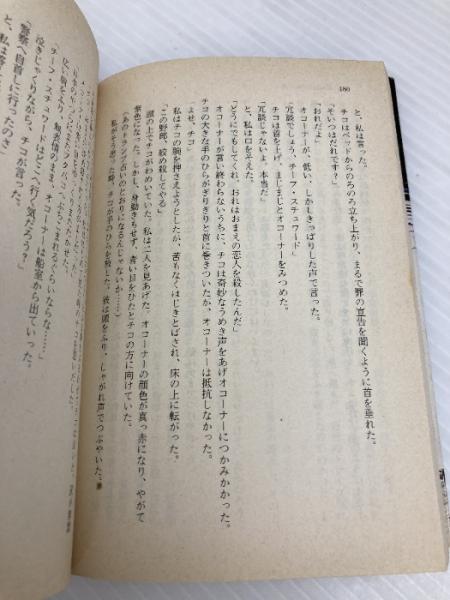 180
と、私は言った。
チコはベッドからのろのろ立ち上がり、まるで罪の宣告を聞くように首を垂れた。
「そいつはだれです?」
「おれだよ」
オコーナーが、低い、しかしきっぱりした声で言った。
「冗談でしょう、チーフ・スチュワード」
チコは首を上げ、まじまじとオコーナーをみつめた。
「冗談じゃないよ、本当だ」
と、私は口をそえた。
「どうにでもしてくれ、おれはおまえの恋人を殺したんだ」
オコーナーが言い終わらないうちに、チコは奇妙なうめき声をあげオコーナーにつかみかかった。
チコの大きな手のひらがぎりぎりと首に巻きついたが、オコーナーは抵抗しなかった。
「よせ、チコ」
私はチコの腕を押さえようとしたが、苦もなくはじきとばされ、床の上に転がった。
「この野郎、絞め殺してやる」
頭の上でチコがわめいていた。私は二人を見あげた。オコーナーの顔色が真っ赤になり、やがて
紫色になった。しかし、身動きもせず、青い目をひたとチコの方に向けていた。
(あのトランプ占いのとおりになるんじゃないか……)
私がそう思った時、チコが手のひらを放した。彼は頭をふり、しゃがれ声でつぶやいた。
無表情のまま、オコーナーは船室から出ていった。
「チーフ・スチュワードはどこへ行く気だろう?」
泣きじゃくりながら、チコが言った。
「警察へ自首しに行ったのさ」
と、私は